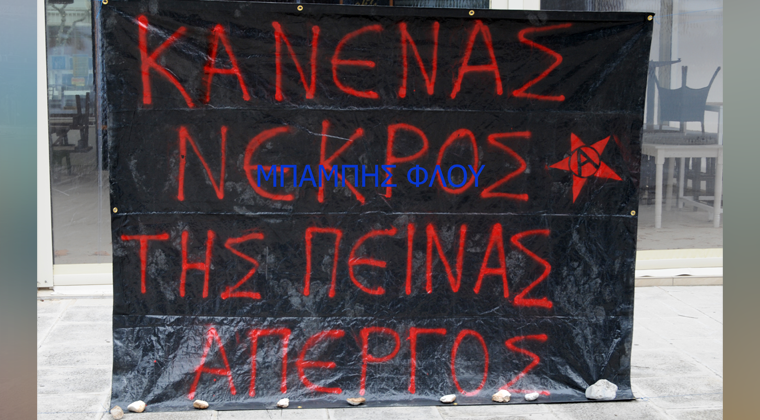 ΚΑΝΕΝΑΣ
ΝΕΚΡΟΣ
ΜΠΑΜΠΗΣ ΦΛΟΥ
Α
ΤΗΣ ΠΕΙΝΑΣ
ΑΠΕΡΓΟΣ